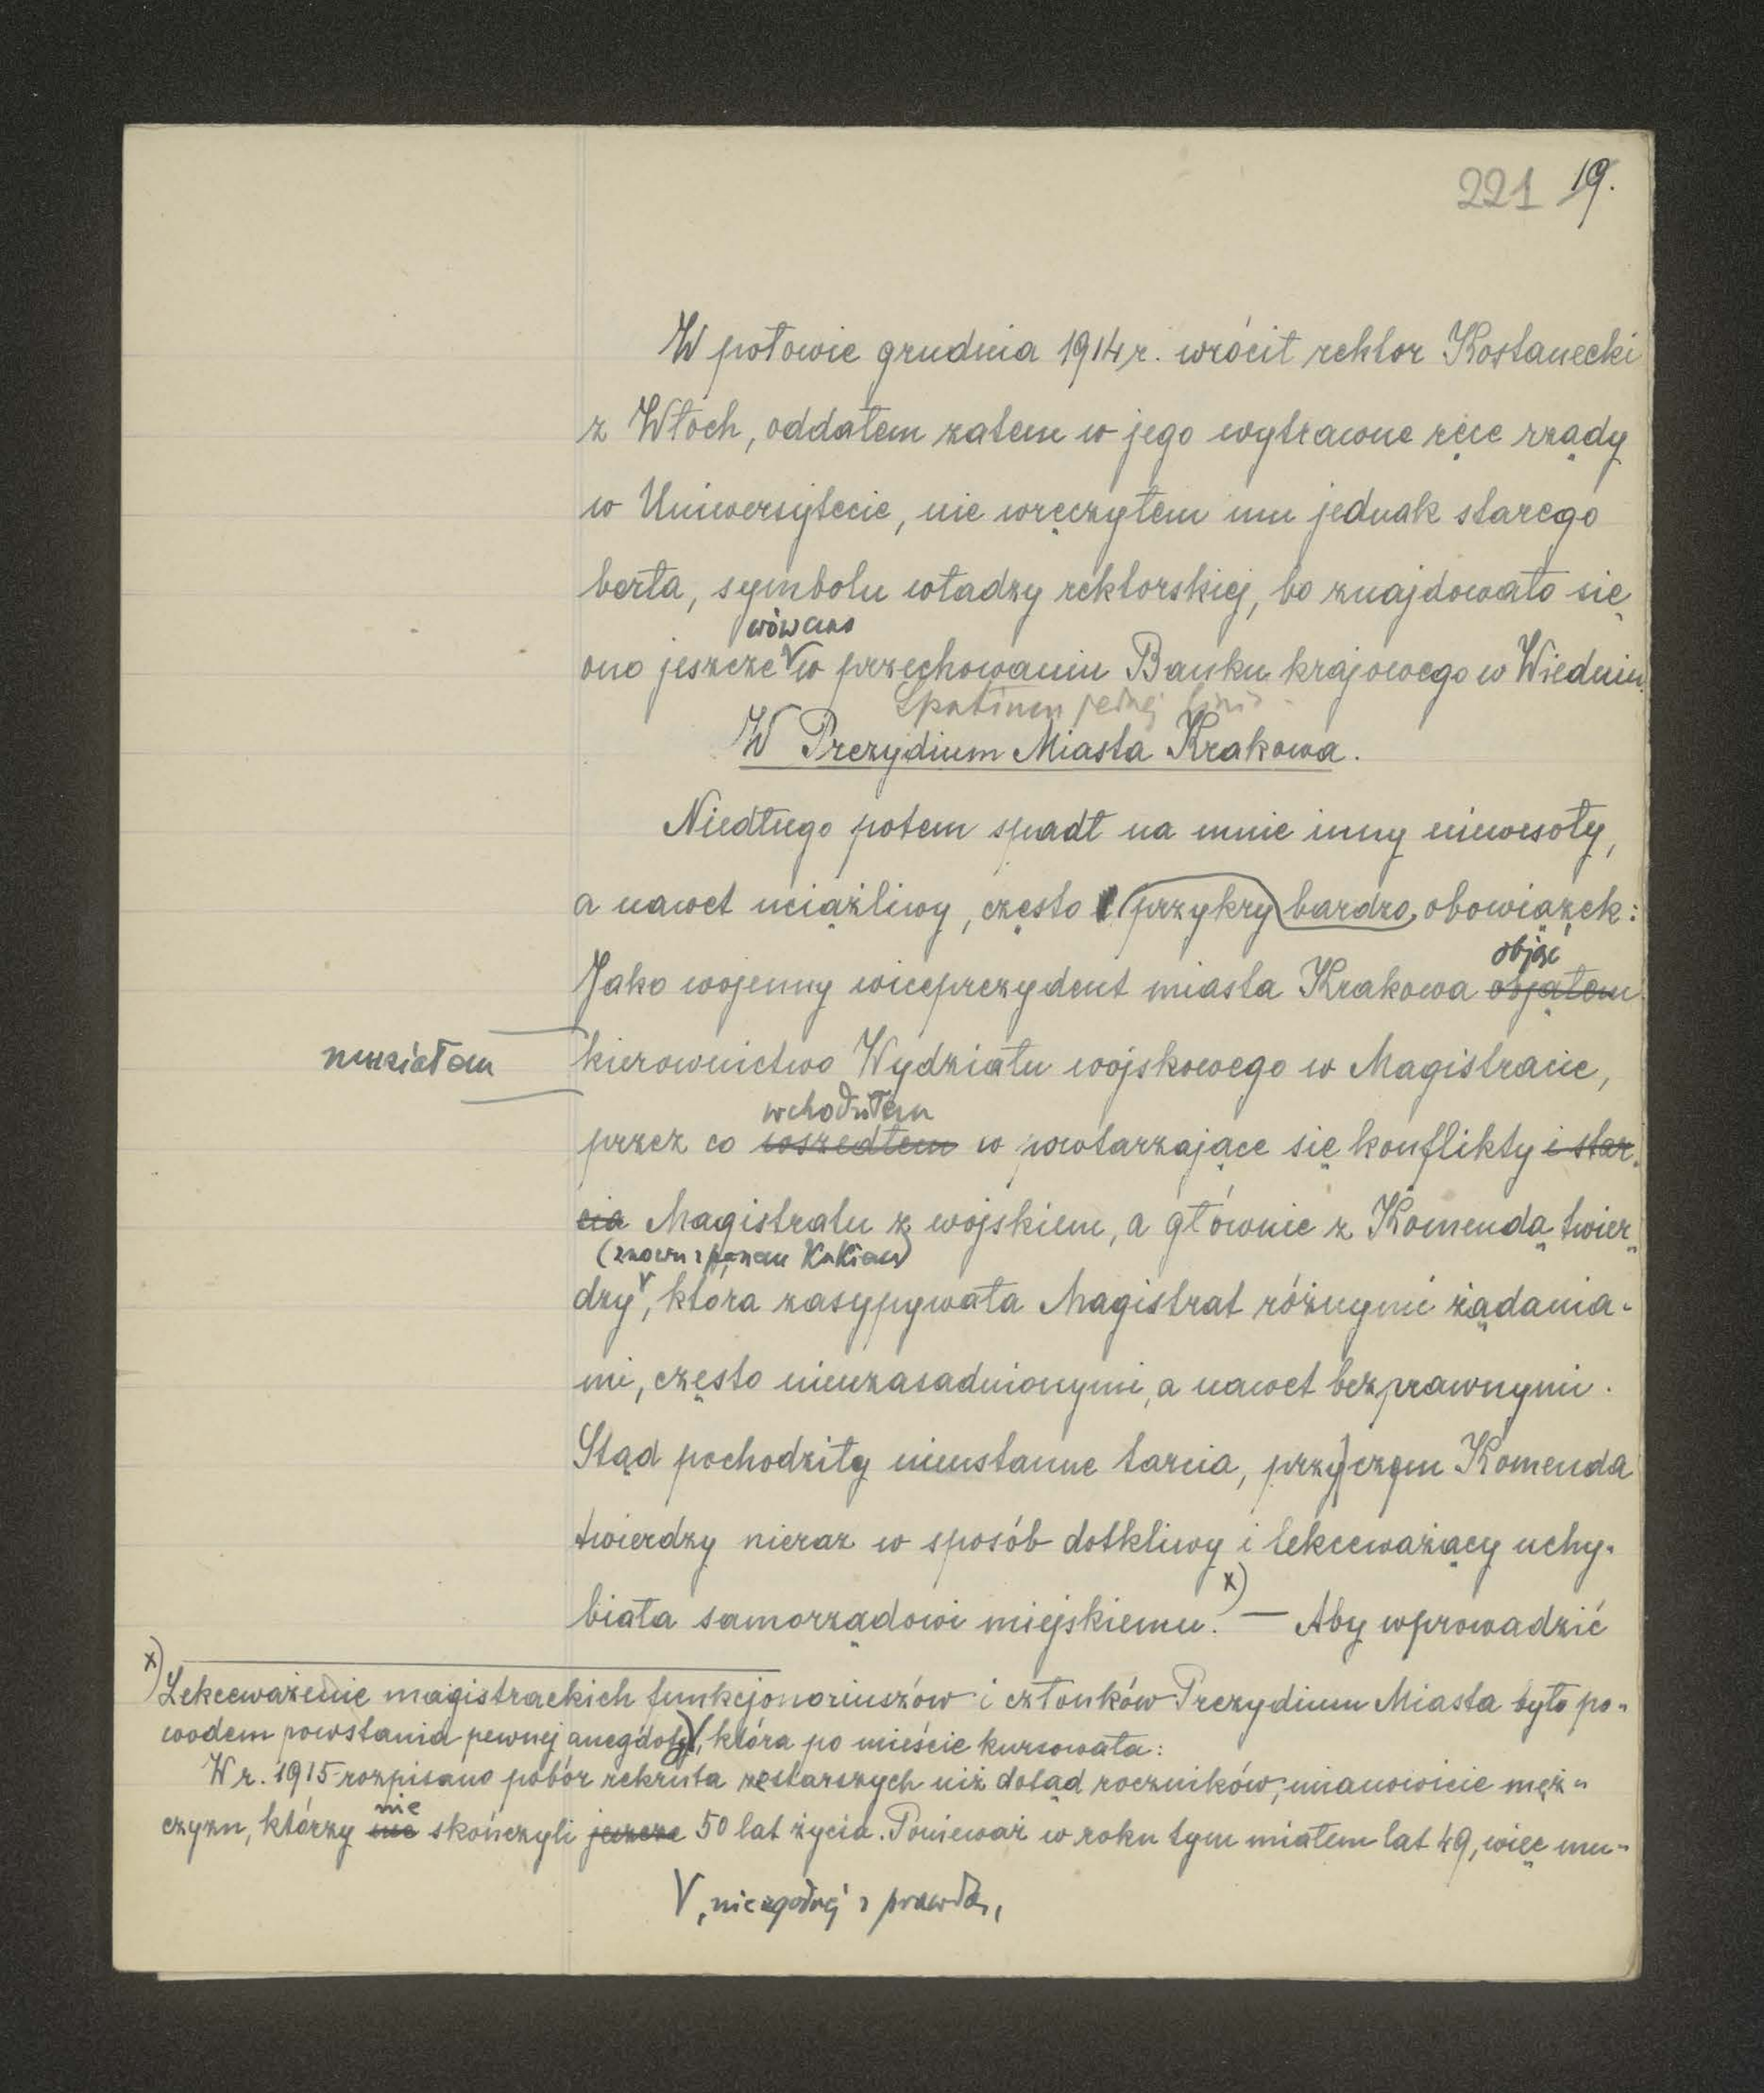 221 19.
W połowie grudnia 1914 r. wrócił rektor Kostanecki
z Włoch, oddałem zatem w jego wytrawne ręce rządy
w Uniwersytecie, nie wręczyłem mu jednak starego
berła, symbolu władzy rektorskiej, bo znajdowało się
wówczas
ono jeszcze w przechowaniu Banku krajowego w Wiedniu.
Spatium jednej linii
W Prezydium Miasta Krakowa.
Niedługo potem spadł na mnie inny niewesoły,
a nawet uciążliwy, często przykry bardzo obowiązek:
objąć
Jako wojenny wiceprezydent miasta Krakowa objąłem
musiałem
kierownictwo Wydziału wojskowego w Magistracie,
wchodziłem
przez co wszedłem w powtarzające się konflikty i star-
cia Magistratu z wojskiem, a głównie z Komendą twier-
(znowu z panem Kukiem)
dzy, która zasypywała Magistrat różnymi żądania-
mi, często nieuzasadnionymi, a nawet bezprawnymi.
Stąd pochodziły nieustanne tarcia, przy czym Komenda
twierdzy nieraz w sposób dotkliwy i lekceważący uchy-
biała samorządowi miejskiemu. x) — Aby wprowadzić
x) Lekceważenie magistrackich funkcjonariuszów i członków Prezydium Miasta było po-
wodem powstania pewnej anegdoty V, która po mieście kursowała:
W r. 1915 rozpisano pobór rekruta ze starszych niż dotąd roczników, mianowicie męż-
nie
czyzn, którzy nie skończyli jeszcze 50 lat życia. Ponieważ w roku tym miałem lat 49, więc mu-
V, niezgodnej z prawdą,